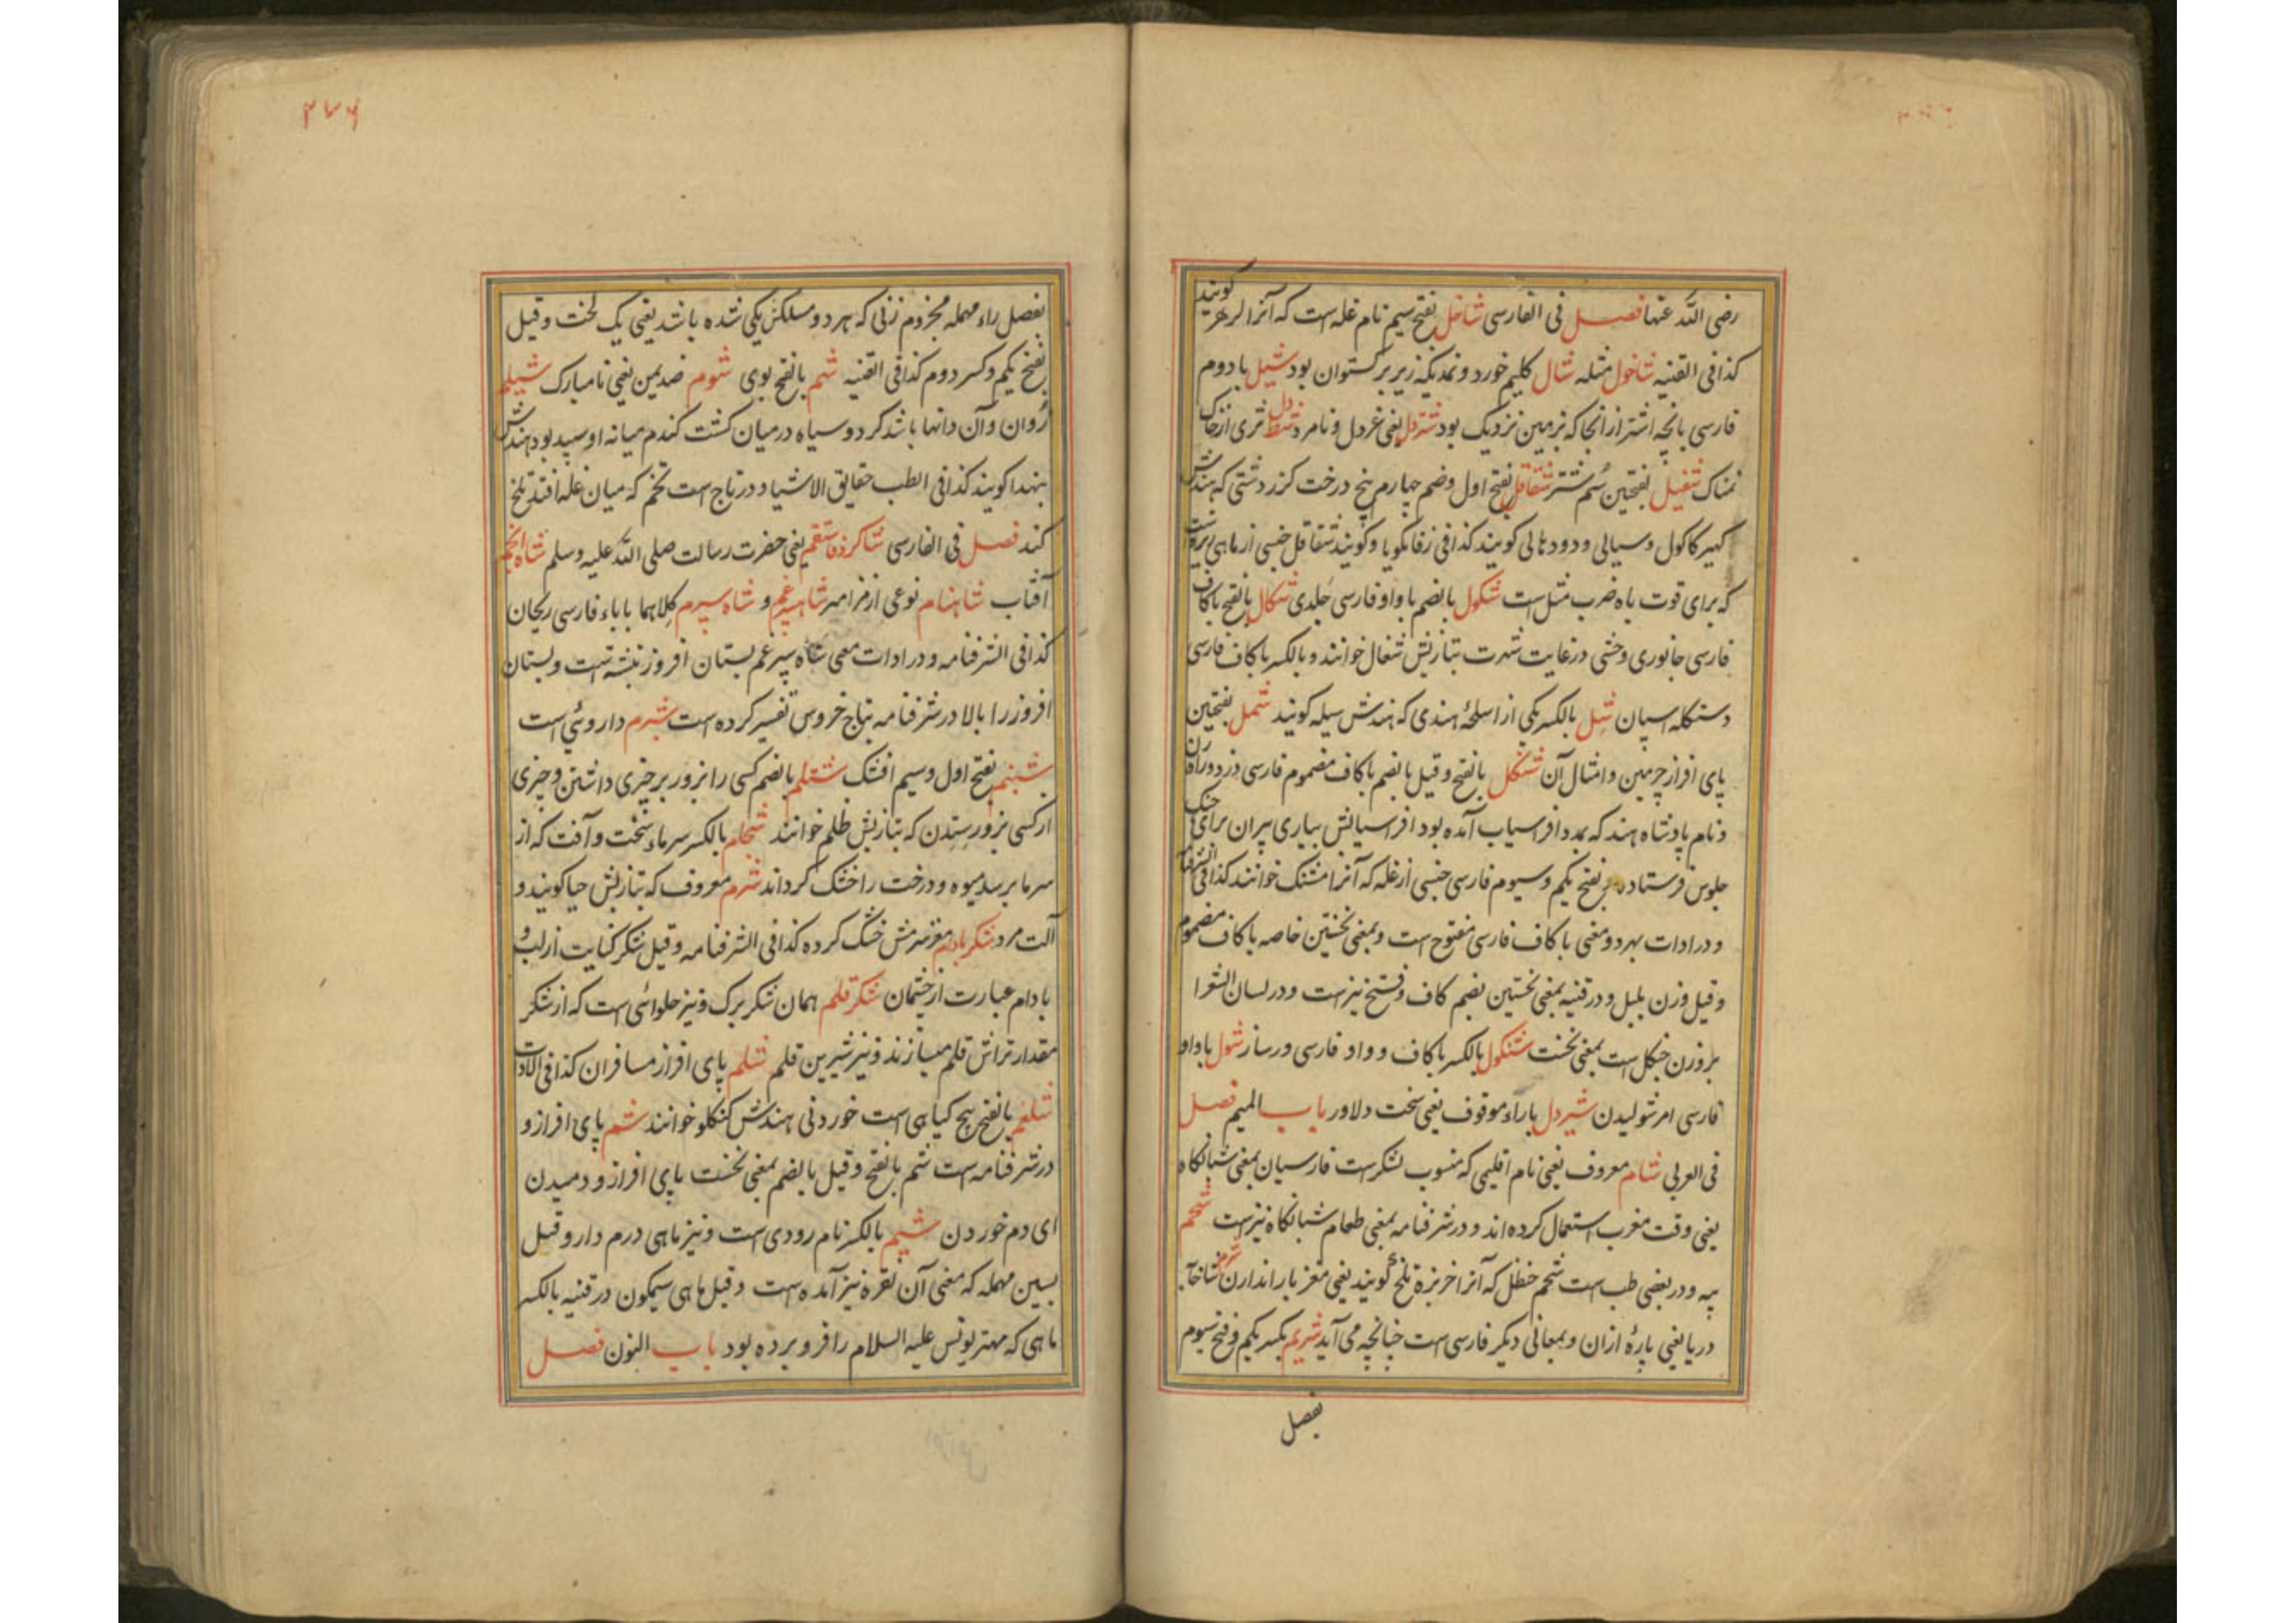 رضی الله عنها فصل فی الفارسی شاخل بفتح سیم نام غله است که آنرا ارهر گویند
کذا فی القنیه شاخول مثله شال کلیم خورد و نمدیکه زیر برکستوان بود شپل با دوم
فارسی پانچه اشتر از انجا که بزمین نزدیک بود شتردل یعنی غردل و نامرد تری از خاک
نمناک بفتحین سم شتر شقاقل بفتح اول و ضم چهارم بیخ درخت کزر دشتی که هندش
کهیر کاکول و سیالی و دودهالی کویند کذا فی زفانکویا و کویند شقاقل جنسی از ماهی
که برای قوت باه ضرب مثل است شکول بالضم با واو فارسی جلدی شکال بالفتح با کاف
فارسی جانوری وحشی در غایت شهرت بتازیش شغال خوانند و بالکسر با کاف فارسی
دستکله اسپان شل بالکسر یکی از اسلحهٔ هندی که هندش سیله کویند شمل بفتحین
پای افراز چرمین و امثال آن شنکل بالفتح و قیل بالضم با کاف مضموم فارسی دزد و راه زن
و نام پادشاه هند که بمدد افراسیاب آمده بود افراسیابش بیاری پیران برای جنک
فرستاده بفتح یکم و سیوم فارسی جنسی از غله که آنرا مشنک خوانند کذا فی الشرفنا
و در ادات بهر دو معنی با کاف فارسی مفتوح است و بمعنی نخستین خاصه با کاف مضموم
و قیل وزن بلبل و در قنیه بمعنی نخستین بضم کاف و فتح نیز است و در لسان الشعرا
بر وزن جنکل است بمعنی نخست شنکول بالکسر با کاف و واو فارسی شول با واو
فارسی امر شولیدن شیردل با راء موقوف یعنی سخت دلاور باب المیم فصل
فی العربی شام معروف یعنی نام اقلیمی که منسوب لشکرست فارسیان بمعنی شبانکاه
یعنی وقت مغرب استعمال کرده اند و در شرفنامه بمعنی طعام شبانکاه نیز است شحم
پیه و در بعضی طب است شحم حنظل که آنرا خربزه تلخ کویند یعنی مغز بار اندارن شرم شاخ آب
دریا یعنی پارهٔ ازان و بمعانی دیکر فارسی است چنانچه می آید شریم بکسر یکم و فتح سیوم
بفصل
٣٧۶
بفصل راء مهمله مجزوم زنی که هر دو مسلکش یکی شده باشد یعنی یک لخت و قیل
بفتح یکم و کسر دوم کذا فی القنیه شم بالفتح بوی شوم ضد یمن یعنی نامبارک شیلم
روان و آن دانها باشد کرد و سیاه در میان کشت کندم میانه او سپید بود هندش
بنهدا کویند کذا فی الطب حقایق الاشیا و در تاج است تخم که میان غله افتد تلخ
کند فصل فی الفارسی یعنی حضرت رسالت صلی الله علیه وسلم شاه انجم
آفتاب شاهنام نوعی از مزامیر شاه سپرغم و شاه سپرم کلاهما با باء فارسی ریحان
کذا فی الشرفنامه و در ادات معنی شاه سپرغم بستان افروز نبشته است و بستان
افروز را بالا در شرفنامه بتاج خروس تفسیر کرده است شبرم داروئی است
شبنم بفتح اول و سیم افشک شتلم بالضم کسی را بزور بر چیزی داشتن و چیزی
از کسی بزور ستدن که بتازیش ظلم خوانند شجام بالکسر سرماء سخت و آفت که از
سرما برسد میوه و درخت را خشک کرداند شرم معروف که بتازیش حیا کویند و
آلت مرد شکر بادام مغز سرمش خشک کرده کذا فی الشرفنامه و قیل شکر کنایت از لب و
بادام عبارت از چشمان شکر قلم همان شکر برک و نیز حلوائی است که از شکر
مقدار تراش قلم میسازند و نیز شیرین قلم شلم پای افراز مسافران کذا فی الادات
شلغم بالفتح بیخ کیاهی است خوردنی هندش کنکلو خوانند شم پای افراز و
در شرفنامه است شم بالفتح و قیل بالضم بمعنی نخست پای افراز و دمیدن
ای دم خوردن شیم بالکسر نام رودی است و نیز ماهی درم دار و قیل
بسین مهمله که معنی آن نقره نیز آمده است و قیل ماهی سیمکون در قنیه بالکسر
ماهی که مهتر یونس علیه السلام را فرو برده بود باب النون فصل